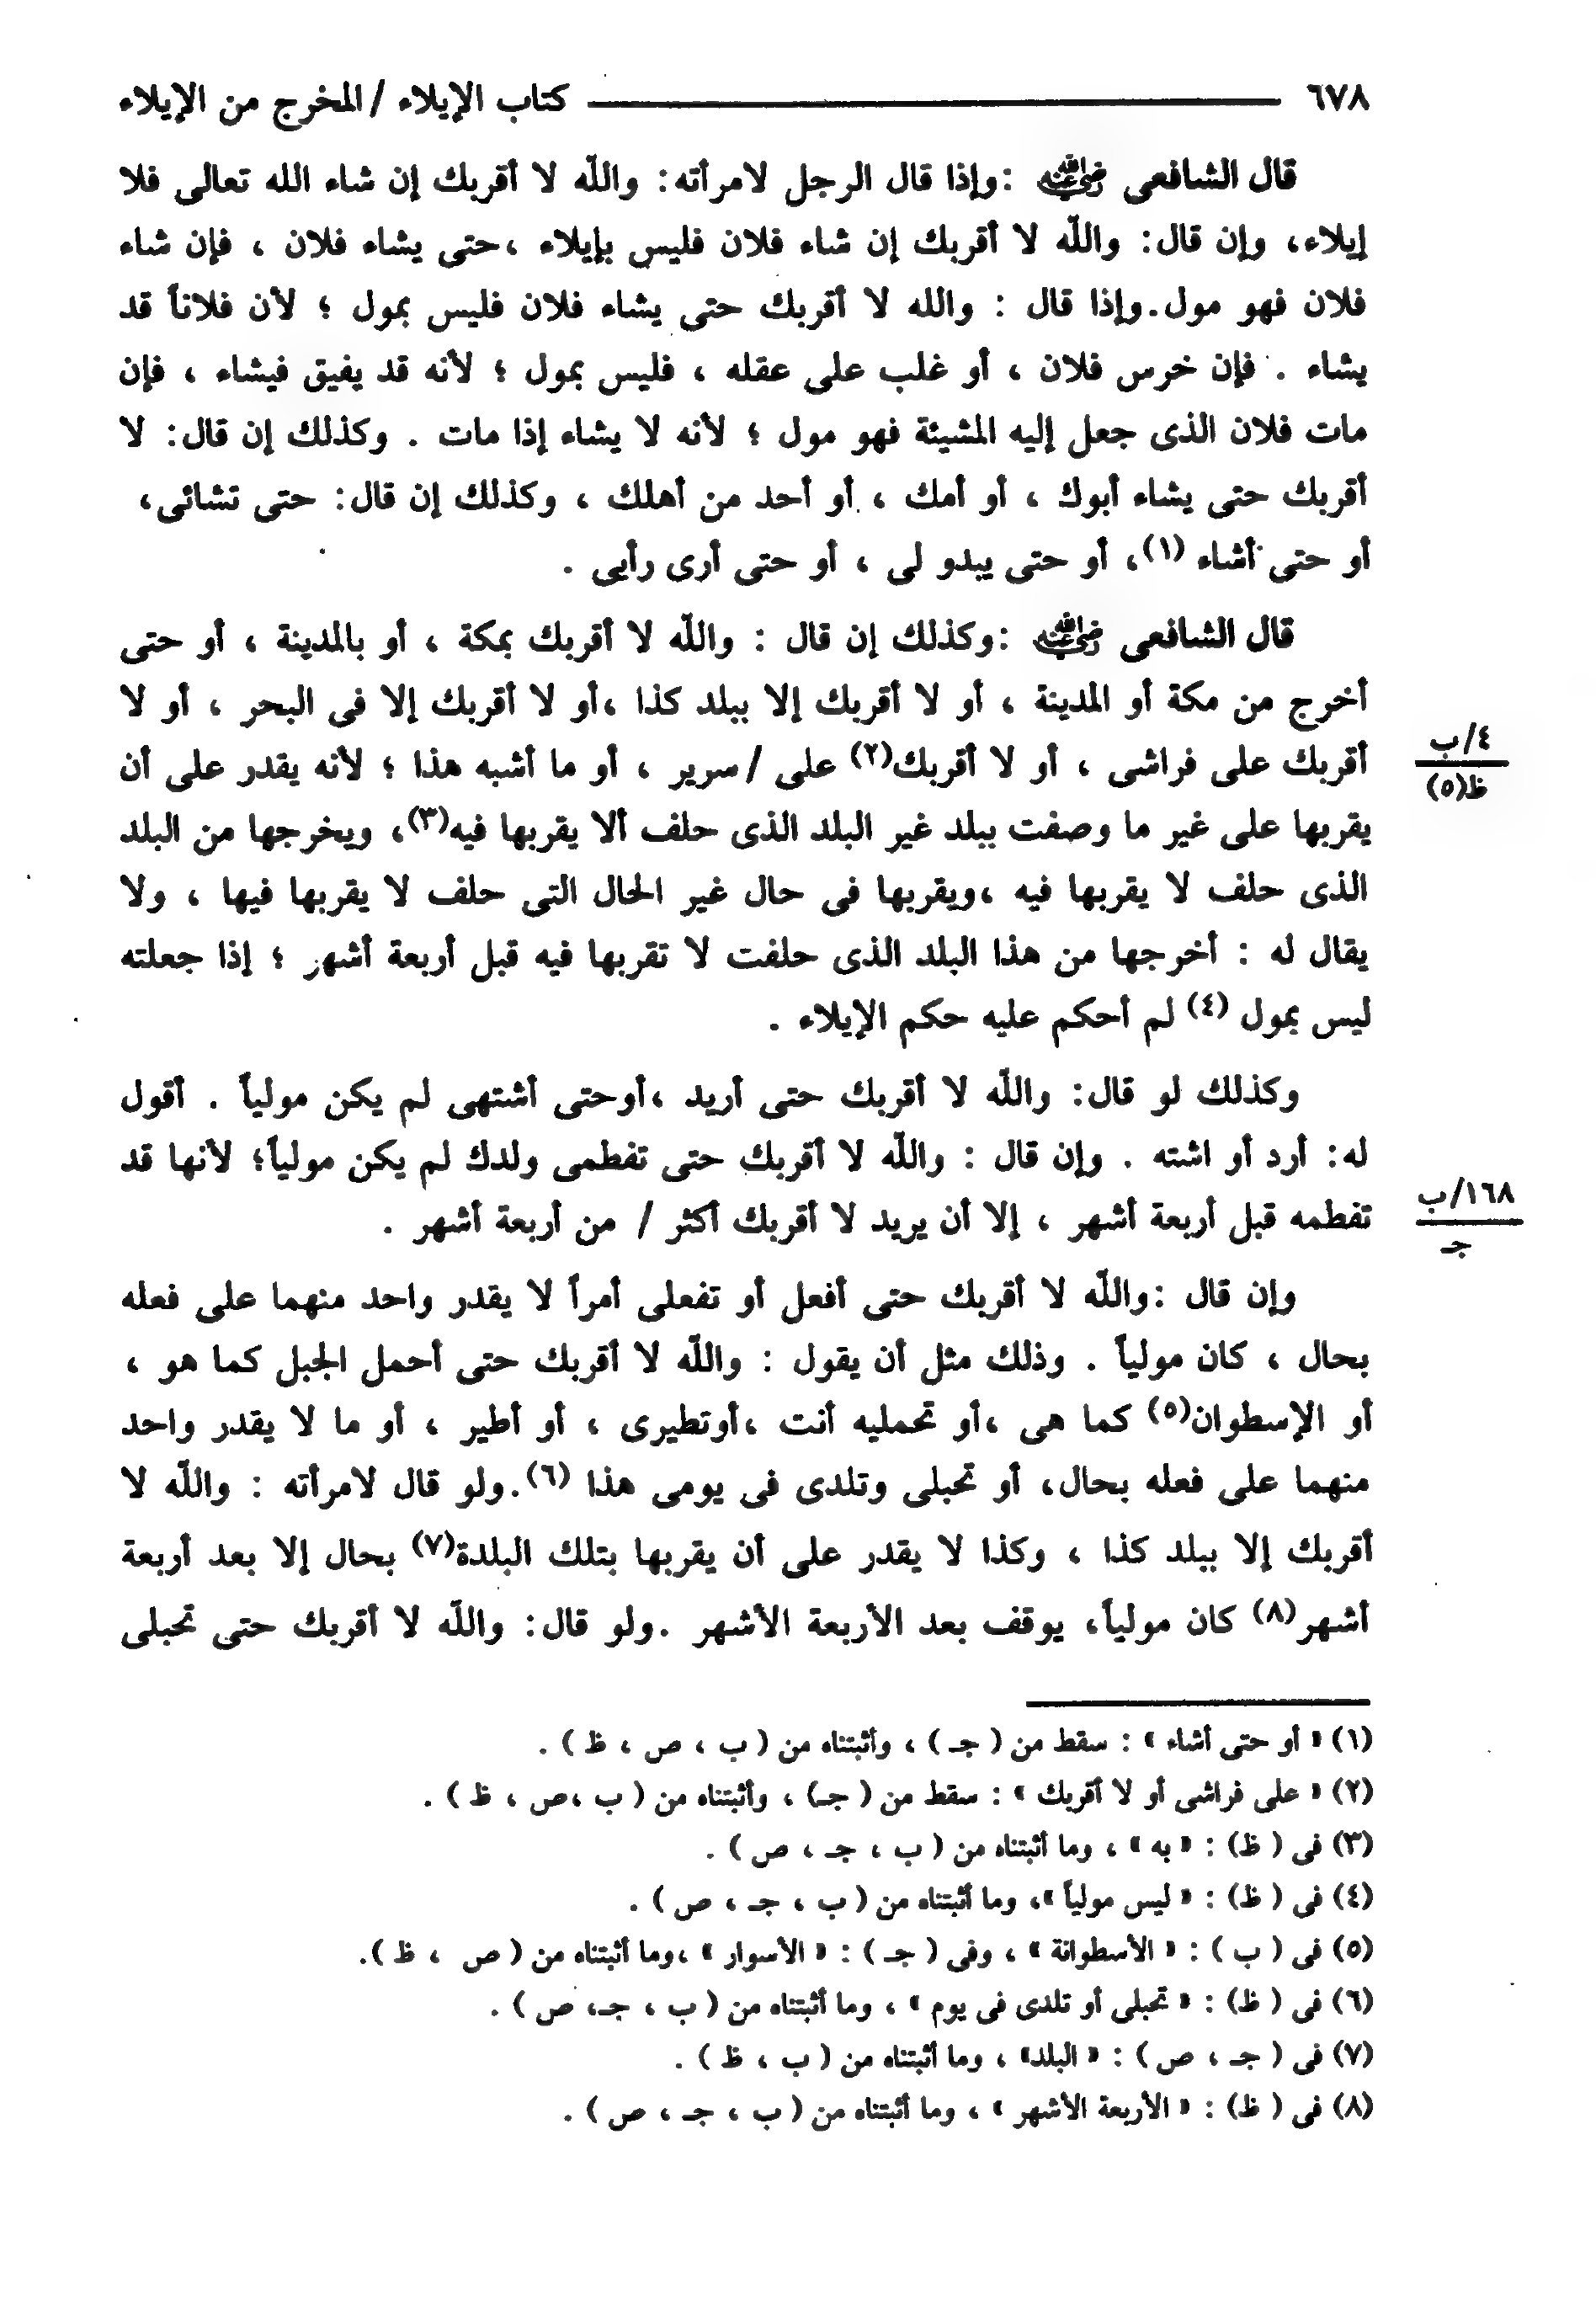 ٦٧٨ ـــــ كتاب الإيلاء / المخرج من الإيلاء
قال الشافعى رضي الله عنه :وإذا قال الرجل لامرأته: واللّه لا أقربك إن شاء الله تعالى فلا
إيلاء، وإن قال: واللّه لا أقربك إن شاء فلان فليس بإيلاء ،حتى يشاء فلان ، فإن شاء
فلان فهو مول.وإذا قال : والله لا أقربك حتى يشاء فلان فليس بمول ؛ لأن فلاناً قد
يشاء . فإن خرس فلان ، أو غلب على عقله ، فليس بمول ؛ لأنه قد يفيق فيشاء ، فإن
مات فلان الذى جعل إليه المشيئة فهو مول ؛ لأنه لا يشاء إذا مات . وكذلك إن قال: لا
أقربك حتى يشاء أبوك ، أو أمك ، أو أحد من أهلك ، وكذلك إن قال: حتى تشائى،
أو حتى أشاء (١)، أو حتى يبدو لى ، أو حتى أرى رأيى .
قال الشافعى رضي الله عنه :وكذلك إن قال : واللّه لا أقربك بمكة ، أو بالمدينة ، أو حتى
أخرج من مكة أو المدينة ، أو لا أقربك إلا ببلد كذا ،أو لا أقربك إلا فى البحر ، أو لا
أقربك على فراشى ، أو لا أقربك(٢) على /سرير ، أو ما أشبه هذا ؛ لأنه يقدر على أن
٤/ب
ظ(٥)
يقربها على غير ما وصفت ببلد غير البلد الذى حلف ألا يقربها فيه(٣)، ويخرجها من البلد
الذى حلف لا يقربها فيه ،ويقربها فى حال غير الحال التى حلف لا يقربها فيها ، ولا
يقال له : أخرجها من هذا البلد الذى حلفت لا تقربها فيه قبل أربعة أشهر ؛ إذا جعلته
ليس بمول (٤) لم أحكم عليه حكم الإيلاء .
وكذلك لو قال: واللّه لا أقربك حتى أريد ،أوحتى أشتهى لم يكن مولياً . أقول
له: أرد أو اشته . وإن قال : واللّه لا أقربك حتى تفطمى ولدك لم يكن مولياً؛ لأنها قد
تفطمه قبل أربعة أشهر ، إلا أن يريد لا أقربك أكثر / من أربعة أشهر .
١٦٨/ب
جـ
وإن قال :واللّه لا أقربك حتى أفعل أو تفعلى أمراً لا يقدر واحد منهما على فعله
بحال ، كان مولياً . وذلك مثل أن يقول : واللّه لا أقربك حتى أحمل الجبل كما هو ،
أو الإسطوان(٥) كما هى ،أو تحمليه أنت ،أوتطيرى ، أو أطير ، أو ما لا يقدر واحد
منهما على فعله بحال، أو تحبلى وتلدى فى يومى هذا (٦).ولو قال لامرأته : واللّه لا
أقربك إلا ببلد كذا ، وكذا لا يقدر على أن يقربها بتلك البلدة(٧) بحال إلا بعد أربعة
أشهر(٨) كان مولياً، يوقف بعد الأربعة الأشهر .ولو قال: واللّه لا أقربك حتى تحبلى
(١) « أو حتى أشاء » : سقط من ( جـ ) ، وأثبتناه من ( ب ، ص ، ظ ) .
(٢) « على فراشى أو لا أقربك » : سقط من ( جـ) ، وأثبتناه من ( ب ،ص ، ظ ) .
(٣) فى ( ظ) : « به » ، وما أثبتناه من ( ب ، جـ ، ص ) .
(٤) فى ( ظ) : « ليس مولياً »، وما أثبتناه من ( ب ، جـ ، ص ) .
(٥) فى ( ب ) : « الأسطوانة » ، وفى ( جـ ) : « الأسوار » ،وما أثبتناه من ( ص ، ظ ).
(٦) فى ( ظ) : « تحبلى أو تلدى فى يوم » ، وما أثبتناه من ( ب ، جـ، ص ) .
(٧) فى ( جـ ، ص ) : « البلد» ، وما أثبتناه من ( ب ، ظ ) .
(٨) فى ( ظ) : « الأربعة الأشهر » ، وما أثبتناه من ( ب ، جـ ، ص ) .